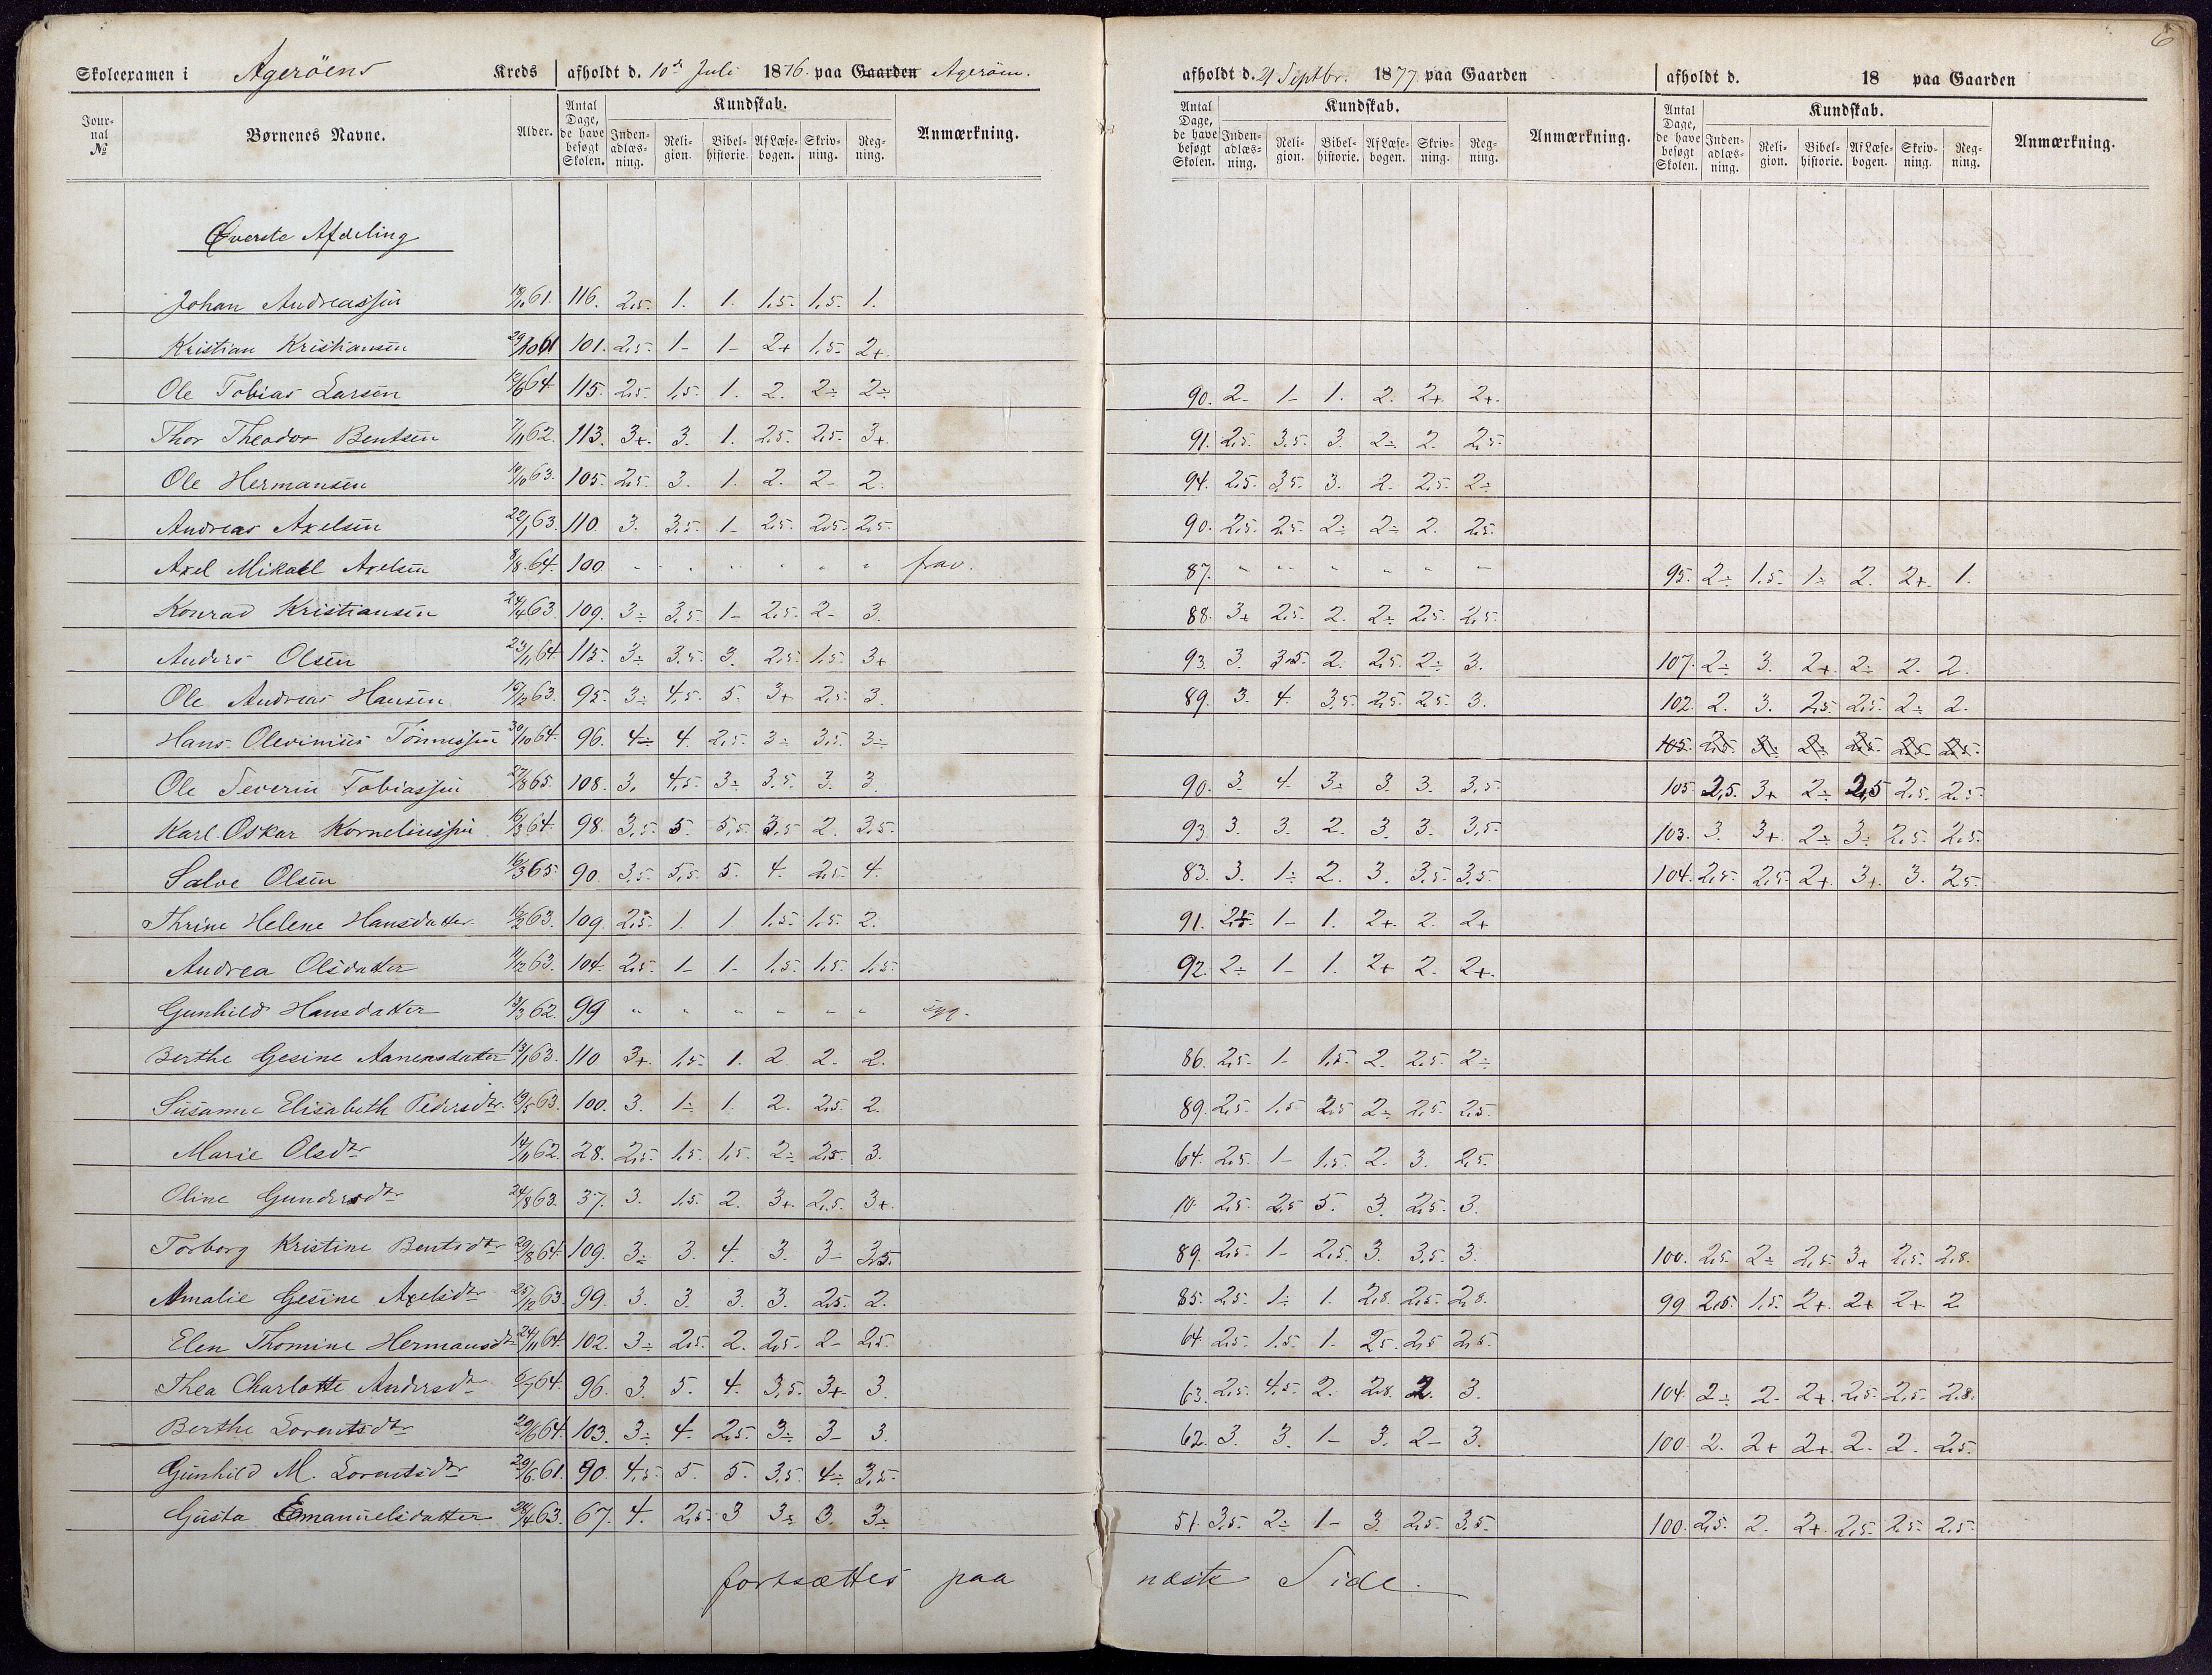 6
Skoleexamen i Agerøens Kreds afholdt d. 10de Juli 1876. paa Gaarden Agerøen. afholdt d. 21 Septbr. 1877 paa Gaarden afholdt d. 18 paa Gaarden
Jour-nal No Børnenes Navne. Alder. Antal Dage, de have besøgt Skolen. Kundskab. Inden-adlæs-ning. Reli-gion. Bibel-historie. Af Læse-bogen. Skriv-ning. Reg-ning. Anmærkning. Antal Dage, de have besøgt Skolen. Kundskab. Inden-adlæs-ning. Reli-gion. Bibel-historie. Af Læse-bogen. Skriv-ning. Reg-ning. Anmærkning. Antal Dage, de have besøgt Skolen. Kundskab. Inden-adlæs-ning. Reli-gion. Bibel-historie. Af Læse-bogen. Skriv-ning. Reg-ning. Anmærkning.
Øverste Afdeling
Johan Andreassen 18/10 61. 116. 2,5. 1. 1. 1,5. 1,5. 1.
Kristian Kristiansen 29/10 61 101. 2,5. 1- 1- 2+ 1,5- 2+.
Ole Tobias Larsen 64. 115. 2,5. 1,5. 1. 2. 2÷ 2÷ 90. 2- 1- 1. 2. 2+. 2+.
Thor Theodor Bentsen 7/11 62. 113. 3+. 3. 1. 2,5. 2,5. 3+. 91. 2,5. 3,5. 3. 2÷ 2. 2,5.
Ole Hermansen 19/10 63. 105. 2,5. 3. 1. 2. 2- 2. 94. 2,5. 3,5. 3. 2. 2,5. 2÷
Andreas Axelsen 22/1 63. 110. 3. 3,5. 1- 2,5. 2,5. 2,5. 90. 2,5. 2,5. 2÷ 2÷ 2. 2,5.
Axel Mikael Axelsen 8/8 64. 100. " " " " " " frav. 87. " " " " " " 95. 2÷ 1,5. 1÷ 2. 2+. 1.
Konrad Kristiansen 24/4 63 109. 3÷ 3,5 1- 2,5. 2- 3. 88. 3+ 2,5. 2. 2÷ 2,5. 2,5.
Anders Olsen 23/11 64. 115. 3÷ 3,5. 3. 2,5. 1,5. 3+ 93. 3. 3,5. 2. 2,5. 2÷ 3. 107. 2÷ 3. 2+. 2÷ 2. 2.
Ole Andreas Hansen 19/12 63. 95. 3÷ 4,5. 5. 3+ 2,5. 3. 89. 3. 4. 3,5. 2,5. 2,5. 3. 102. 2. 3. 2,5. 2,5. 2÷ 2.
Hans Olevinius Tønnessen 30/10 64. 96. 4÷ 4. 2,5. 3÷ 3,5. 3÷ 105.
Ole Severin Tobiassen 27/8 65. 108. 3. 4,5. 3÷ 3,5. 3. 3. 90. 3. 4. 3÷ 3. 3. 3,5. 105 2,5. 3+ 2÷ 2,5 2,5. 2,5
Karl Oskar Korneliussen 16/3 64. 98. 3,5. 5. 5,5 3,5 2. 3,5. 93. 3. 3. 2. 3. 3. 3,5. 103. 3. 3+. 2÷ 3÷ 2,5. 2,5.
Salve Olsen 16/3 65. 90. 3,5. 5,5. 5. 4. 2,5. 4. 83. 3. 1÷ 2. 3. 3,5. 3,5. 104. 2,5. 2,5. 2+. 3+. 3. 2,5.
Thrine Helene Hansdatter. 63. 109. 2,5. 1. 1 1,5. 1,5. 2. 91. 1- 1. 2+. 2. 2+
Andrea Olsdatter 11/12 63. 104. 2,5. 1- 1- 1,5. 1,5. 1,5. 92. 2÷ 1- 1. 2+ 2. 2+.
Gunhild Hansdatter 13/3 62. 99 " " " " " " syg.
Berthe Gesine Aanensdatter 13/1 63. 110 3+. 1,5. 1. 2 2. 2. 86. 2,5. 1- 1,5. 2. 2,5. 2÷
Susanne Elisabeth Pedersdtr. 19/5 63. 100. 3. 1÷ 1. 2. 2,5. 2. 89. 2,5. 1,5 2,5 2÷ 2,5. 2,5.
Marie Olsdtr 14/11 62. 28. 2,5. 1,5. 1,5. 2÷ 2,5. 3. 64. 2,5. 1- 1,5. 2. 3. 2,5.
Oline Gundersdtr 24/8 63. 37. 3. 1,5. 2. 3+. 2,5. 3+. 10. 2,5. 2,5 5. 3. 2,5. 3.
Torborg Kristine Bentsdtr 29/8 64. 109. 3÷ 3. 4. 3. 3- 3,5. 89. 2,5. 1- 2,5 3. 3,5 3. 100. 2,5. 2÷ 2,5. 3+ 2,5. 2,8.
Amalie Gesine Axelsdtr 25/12 63. 99. 3. 3. 3. 3. 2,5. 2. 85. 2,5. 1÷ 1. 2,8. 2,5. 2,8. 99 2,5. 1,5. 2+. 2+ 2+. 2
Elen Thomine Hermansdtr 24/11 64. 102. 3÷ 2,5. 2. 2,5. 2- 2,5. 64. 2,5. 1,5. 1- 2,5. 2,5 2,5.
Thea Charlotte Andersdtr 6/7 64. 96. 3. 5. 4. 3,5. 3+. 3. 63. 2,5. 4,5. 2. 2,8. 2. 3. 104. 2÷ 2. 2+. 2,5. 2,5. 2,8.
Berthe Lorentsdtr 29/6 64. 103. 3÷ 4. 2,5. 3÷ 3- 3. 62. 3. 3. 1- 3. 2- 3. 100. 2. 2+ 2+. 2. 2. 2,5.
Gunhild M. Lorentsdtr 29/6 61. 90. 4,5. 5. 5. 3,5. 4÷ 3,5.
Gusta Emanuelsdatter 24/4 63. 67. 4. 2,5. 3 3÷ 3. 3÷ 51. 3,5. 2÷ 1- 3. 2,5. 3,5. 100. 2,5. 2. 2+. 2,5. 2,5. 2,5.
fortsættes paa næste Side.